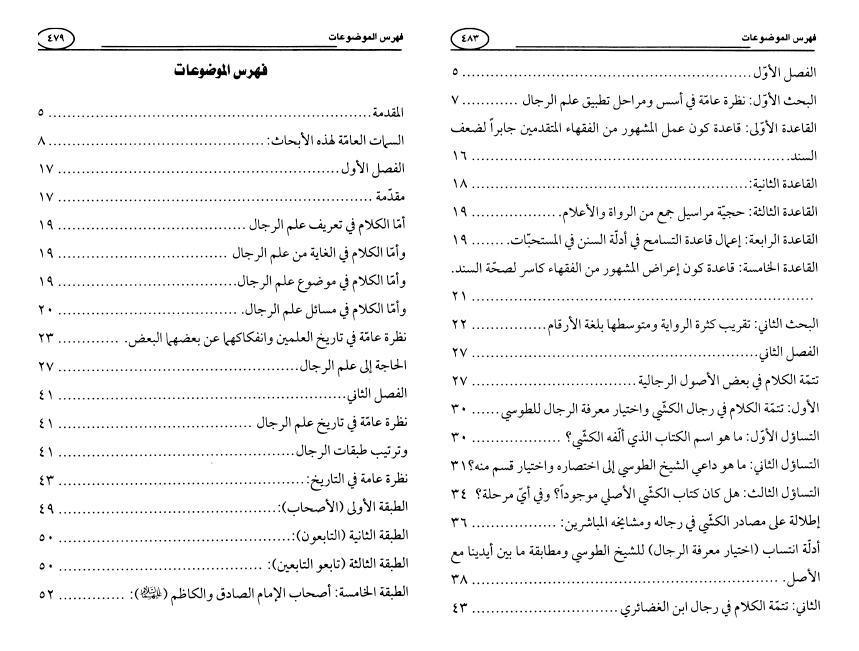 فهرس الموضوعات ٤٨٣
الفصل الأوّل ................................................ ٥
البحث الأوّل: نظرة عامّة في أسس ومراحل تطبيق علم الرجال ............ ٧
القاعدة الأوّلى: قاعدة كون عمل المشهور من الفقهاء المتقدمين جابراً لضعف
السند ................................................ ١٦
القاعدة الثانية: ................................................ ١٨
القاعدة الثالثة: حجيّة مراسيل جمع من الرواة والأعلام. ................ ١٩
القاعدة الرابعة: إعمال قاعدة التسامح في أدلّة السنن في المستحبّات. ....... ١٩
القاعدة الخامسة: قاعدة كون إعراض المشهور من الفقهاء كاسر لصحّة السند.
................................................ ٢١
البحث الثاني: تقريب كثرة الرواية ومتوسطها بلغة الأرقام ................ ٢٢
الفصل الثاني ................................................ ٢٧
تتمّة الكلام في بعض الأصول الرجالية ................................ ٢٧
الأول: تتمّة الكلام في رجال الكشّي واختيار معرفة الرجال للطوسي ...... ٣٠
التساؤل الأوّل: ما هو اسم الكتاب الذي ألّفه الكشّي؟ .................. ٣٠
التساؤل الثاني: ما هو داعي الشيخ الطوسي إلى اختصاره واختيار قسم منه؟ ٣١
التساؤل الثالث: هل كان كتاب الكشّي الأصلي موجوداً؟ وفي أيّ مرحلة؟ ٣٤
إطلالة على مصادر الكشّي في رجاله ومشايخه المباشرين: ................ ٣٦
أدلّة انتساب (اختيار معرفة الرجال) للشيخ الطوسي ومطابقة ما بين أيدينا مع
الأصل. ................................................ ٣٨
الثاني: تتمّة الكلام في رجال ابن الغضائري ............................ ٤٣
فهرس الموضوعات ٤٧٩
فهرس الموضوعات
المقدمة ................................................ ٥
السمات العامّة لهذه الأبحاث: ................................ ٨
الفصل الأول ................................................ ١٧
مقدّمة ................................................ ١٧
أمّا الكلام في تعريف علم الرجال ................................ ١٩
وأمّا الكلام في الغاية من علم الرجال ............................ ١٩
وأمّا الكلام في موضوع علم الرجال ............................ ١٩
وأمّا الكلام في مسائل علم الرجال. ............................ ٢٠
نظرة عامّة في تاريخ العلمين وانفكاكهما عن بعضهما البعض. ............ ٢٣
الحاجة إلى علم الرجال ................................ ٢٧
الفصل الثاني ................................................ ٤١
نظرة عامّة في تاريخ علم الرجال ............................ ٤١
وترتيب طبقات الرجال ................................ ٤١
نظرة عامة في التاريخ: ................................ ٤٣
الطبقة الأولى (الأصحاب): ................................ ٤٩
الطبقة الثانية (التابعون): ................................ ٥٠
الطبقة الثالثة (تابعو التابعين): ............................ ٥٠
الطبقة الخامسة: أصحاب الإمام الصادق والكاظم (): .............. ٥٢